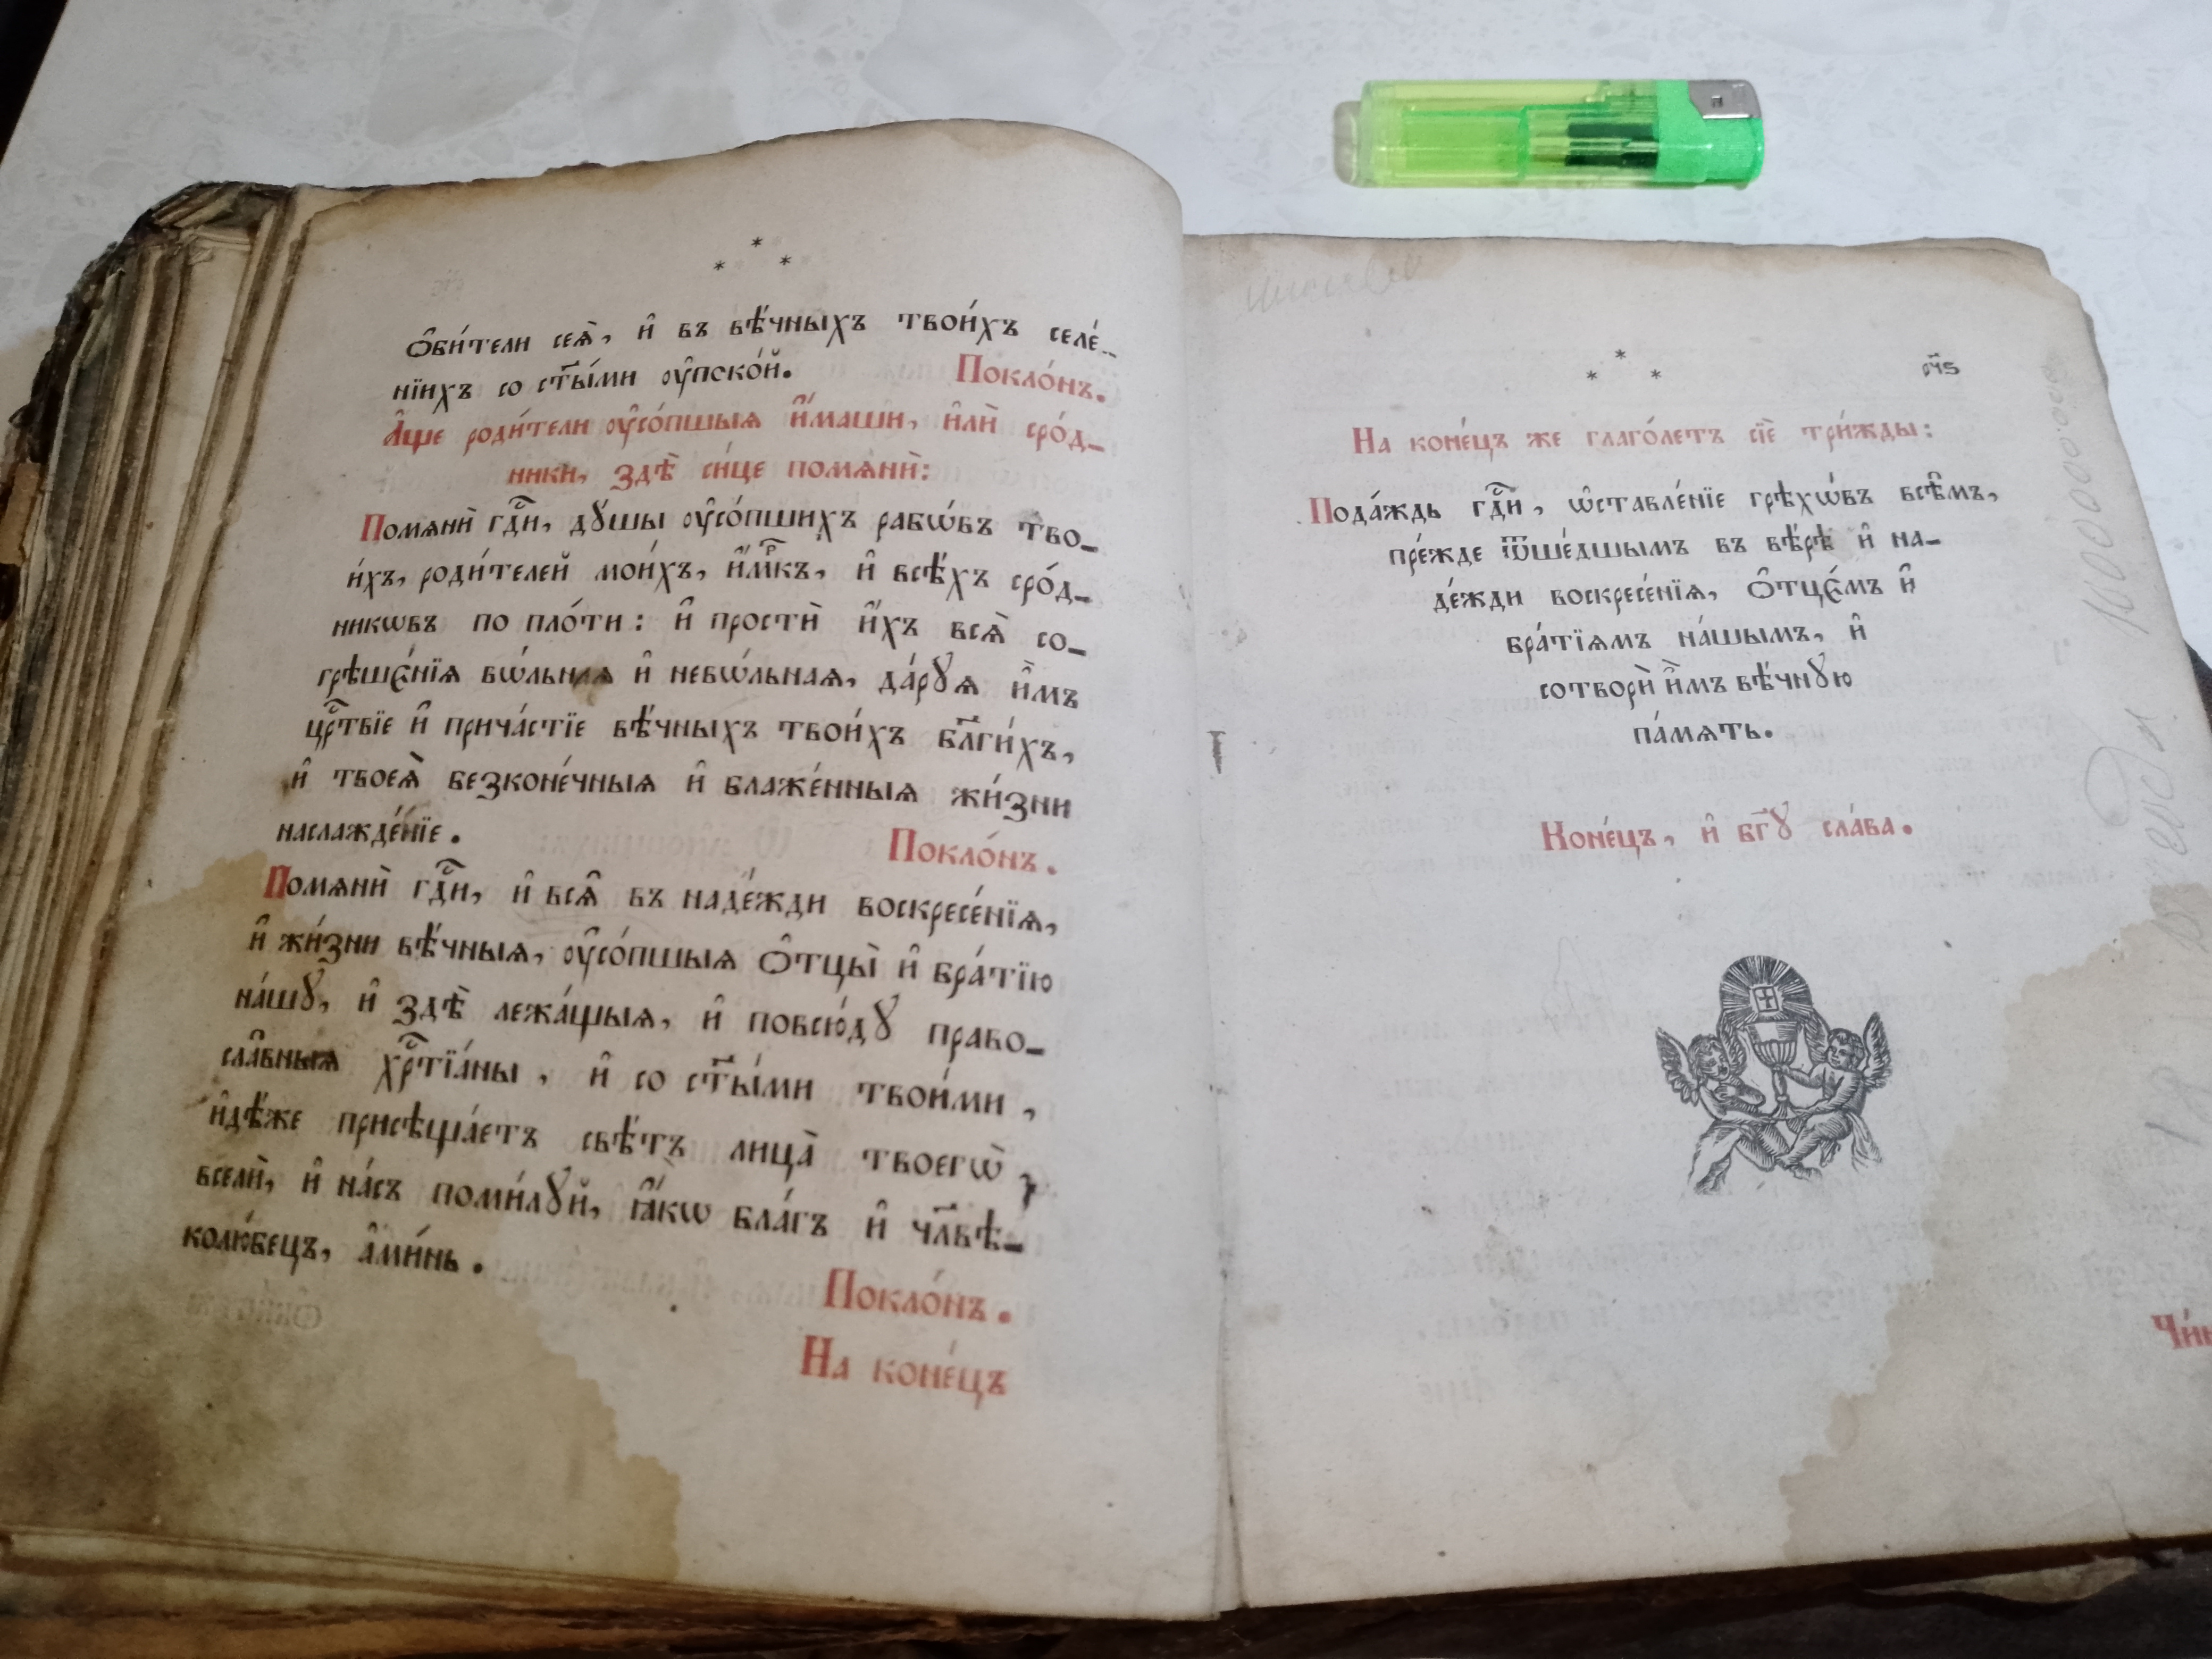 * * *
Ѻ҆би́тели сеѧ̀, и҆ въ вѣ́чныхъ твои́хъ селе́-
нїихъ со ст҃ы́ми ᲂу҆поко́й. Покло́нъ.
А҆́ще роди́тели ᲂу҆со́пшыѧ и҆́маши, и҆лѝ сро́д-
ники, здѣ̀ си́це помѧнѝ:
Помѧнѝ гдⷭ҇и, дꙋ́шы ᲂу҆со́пшихъ рабѡ́въ тво-
и́хъ, роди́телей мои́хъ, и҆́мⷬ҇къ, и҆ всѣ́хъ сро́д-
никѡвъ по пло́ти: и҆ простѝ и҆̀хъ всѧ̀ со-
грѣшє́нїѧ вѡ́льнаѧ и҆ невѡ́льнаѧ, да́рꙋѧ и҆̀мъ
црⷭ҇твїе и҆ прича́стїе вѣ́чныхъ твои́хъ бл҃ги́хъ,
и҆ твоеѧ̀ безконе́чныѧ и҆ блаже́нныѧ жи́зни
наслажде́нїе. Покло́нъ.
Помѧнѝ гдⷭ҇и, и҆ всѧ̑ въ наде́жди воскресе́нїѧ,
и҆ жи́зни вѣ́чныѧ, ᲂу҆со́пшыѧ Ѻ҆тцы̀ и҆ бра́тїю
на́шꙋ, и҆ здѣ̀ лежа́щыѧ, и҆ повсю́дꙋ право-
сла̑вныѧ хрⷭ҇тїа́ны, и҆ со ст҃ы́ми твои́ми,
и҆дѣ́же присѣща́етъ свѣ́тъ лица̀ твоегѡ̀,
вселѝ, и҆ на́съ поми́лꙋй, ꙗ҆́кѡ бла́гъ и҆ чл҃вѣ-
колю́бецъ, а҆ми́нь.
Покло́нъ.
На коне́цъ
* * *
рч҃ѕ
На коне́цъ же глаго́летъ сїѐ три́жды:
Пода́ждь гдⷭ҇и, ѡ҆ставле́нїе грѣхѡ́въ всѣ̑мъ,
пре́жде ѿше́дшымъ въ вѣ́рѣ и҆ на-
де́жди воскресе́нїѧ, Ѻ҆тцє́мъ и҆
бра́тїѧмъ на́шымъ, и҆
сотворѝ и҆̀мъ вѣ́чнꙋю
па́мѧть.
Коне́цъ, и҆ бг҃ꙋ сла́ва.